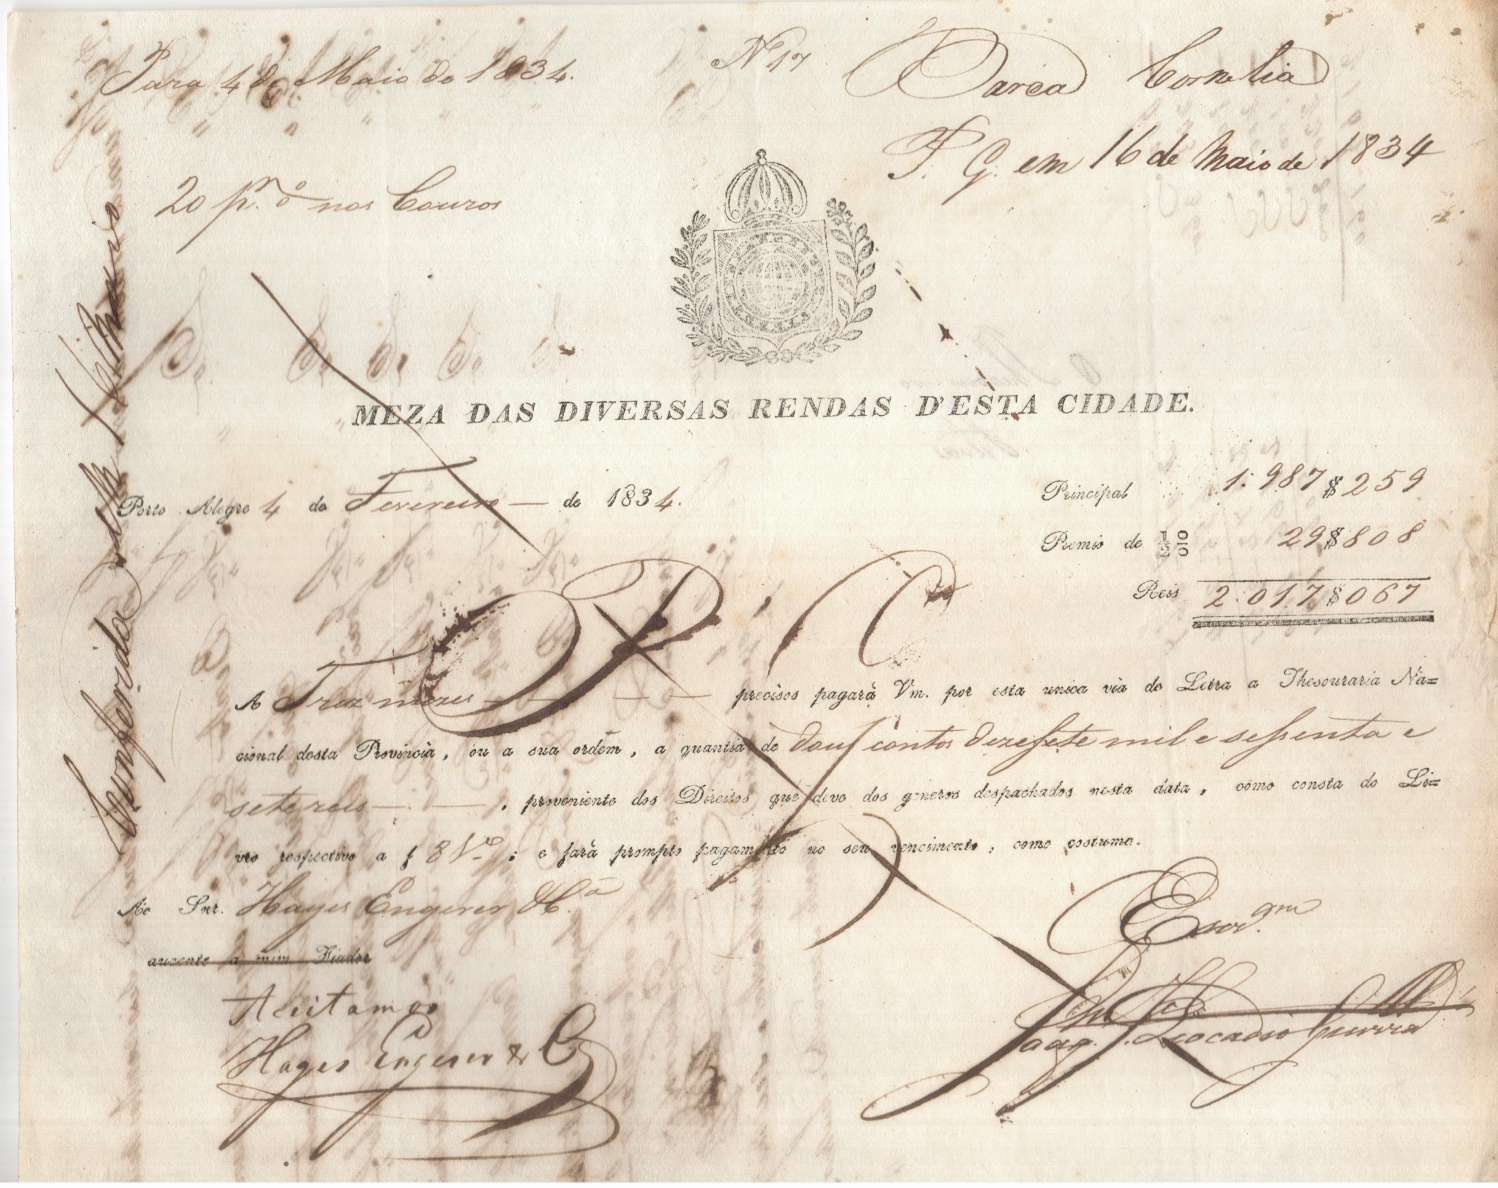 Para 4 de Maio de 1834.
Nº 17
Barca Cornelia
P. G. em 16 de Maio de 1834
20 pr.º nos Couros
MEZA DAS DIVERSAS RENDAS D'ESTA CIDADE.
Porto Alegre 4 de Fevereiro — de 1834.
Principal 1:987$259
Premio de ½ 0/0 29$808
Reis 2:017$067
A Trez mezes — — precisos pagará Vm. por esta unica via de Letra a Thesouraria Na=
cional desta Provincia, ou a sua ordem, a quantia de dous contos dezesete mil e sessenta e
sete reis — — , proveniente dos Direitos que deve dos generos despachados nesta data, como consta do Li=
vro respectivo a f 8 Vº ; e fará prompto pagamento no seu vencimento, como costuma.
Ao Snr. Hayes Engerer & C.ª
auzente a mim Fiador
Aceitamos
Hayes Engerer & C
Escr.am
Leocadio Guerra
Conferida